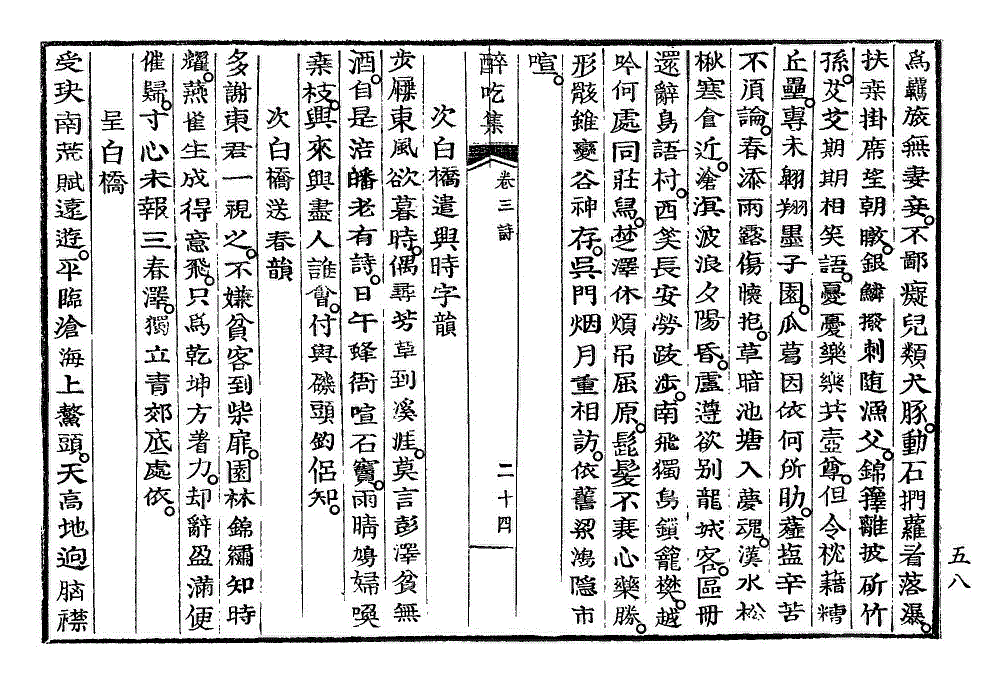 五八
爲羈旅無妻妾。不鄙癡兒類犬豚。動石捫蘿看落瀑。
扶桒掛席笙朝暾。銀鱗撥刺随漁父。錦籜離披斫竹
孫。艾艾期期相笑語。憂憂樂樂共壺尊。但令枕藉糟
丘壘。專未翺翔墨子園。瓜葛因依何所助。虀塩辛苦
不湏論。春添雨露傷懷抱。草暗池塘入夢魂。漢水松
楸寒食近。滄溟波浪夕陽昏。盧遵欲别龍城客。區冊
還辭鳥語村。西笑長安勞跂步。南飛獨鳥鎖籠樊。越
吟何處同莊舄。楚澤休煩吊屈原。髭髮不衰心藥勝。
形骸雖變谷神存。吳門烟月重相訪。依舊梁鴻隐市
喧。
醉吃集 卷三詩 二十四
次白橋遣興時字韻
步屧東風欲暮時。偶尋芳草到溪涯。莫言彭澤貧無
酒。自是涪皤老有詩。日午蜂衙喧石竇。雨晴鳩婦喚
桒枝。興來興盡人誰會。付與磯頭釣侣知。
次白橋送春韻
多謝東君一視之。不嫌貧客到柴扉。園林錦繡知時
耀。燕雀生成得意飛。只爲乾坤方着力。却辭盈滿便
催歸。寸心未報三春澤。獨立青郊底處依。
呈白橋
受玦南荒賦遠遊。平臨滄海上鰲頭。天高地逈脑襟